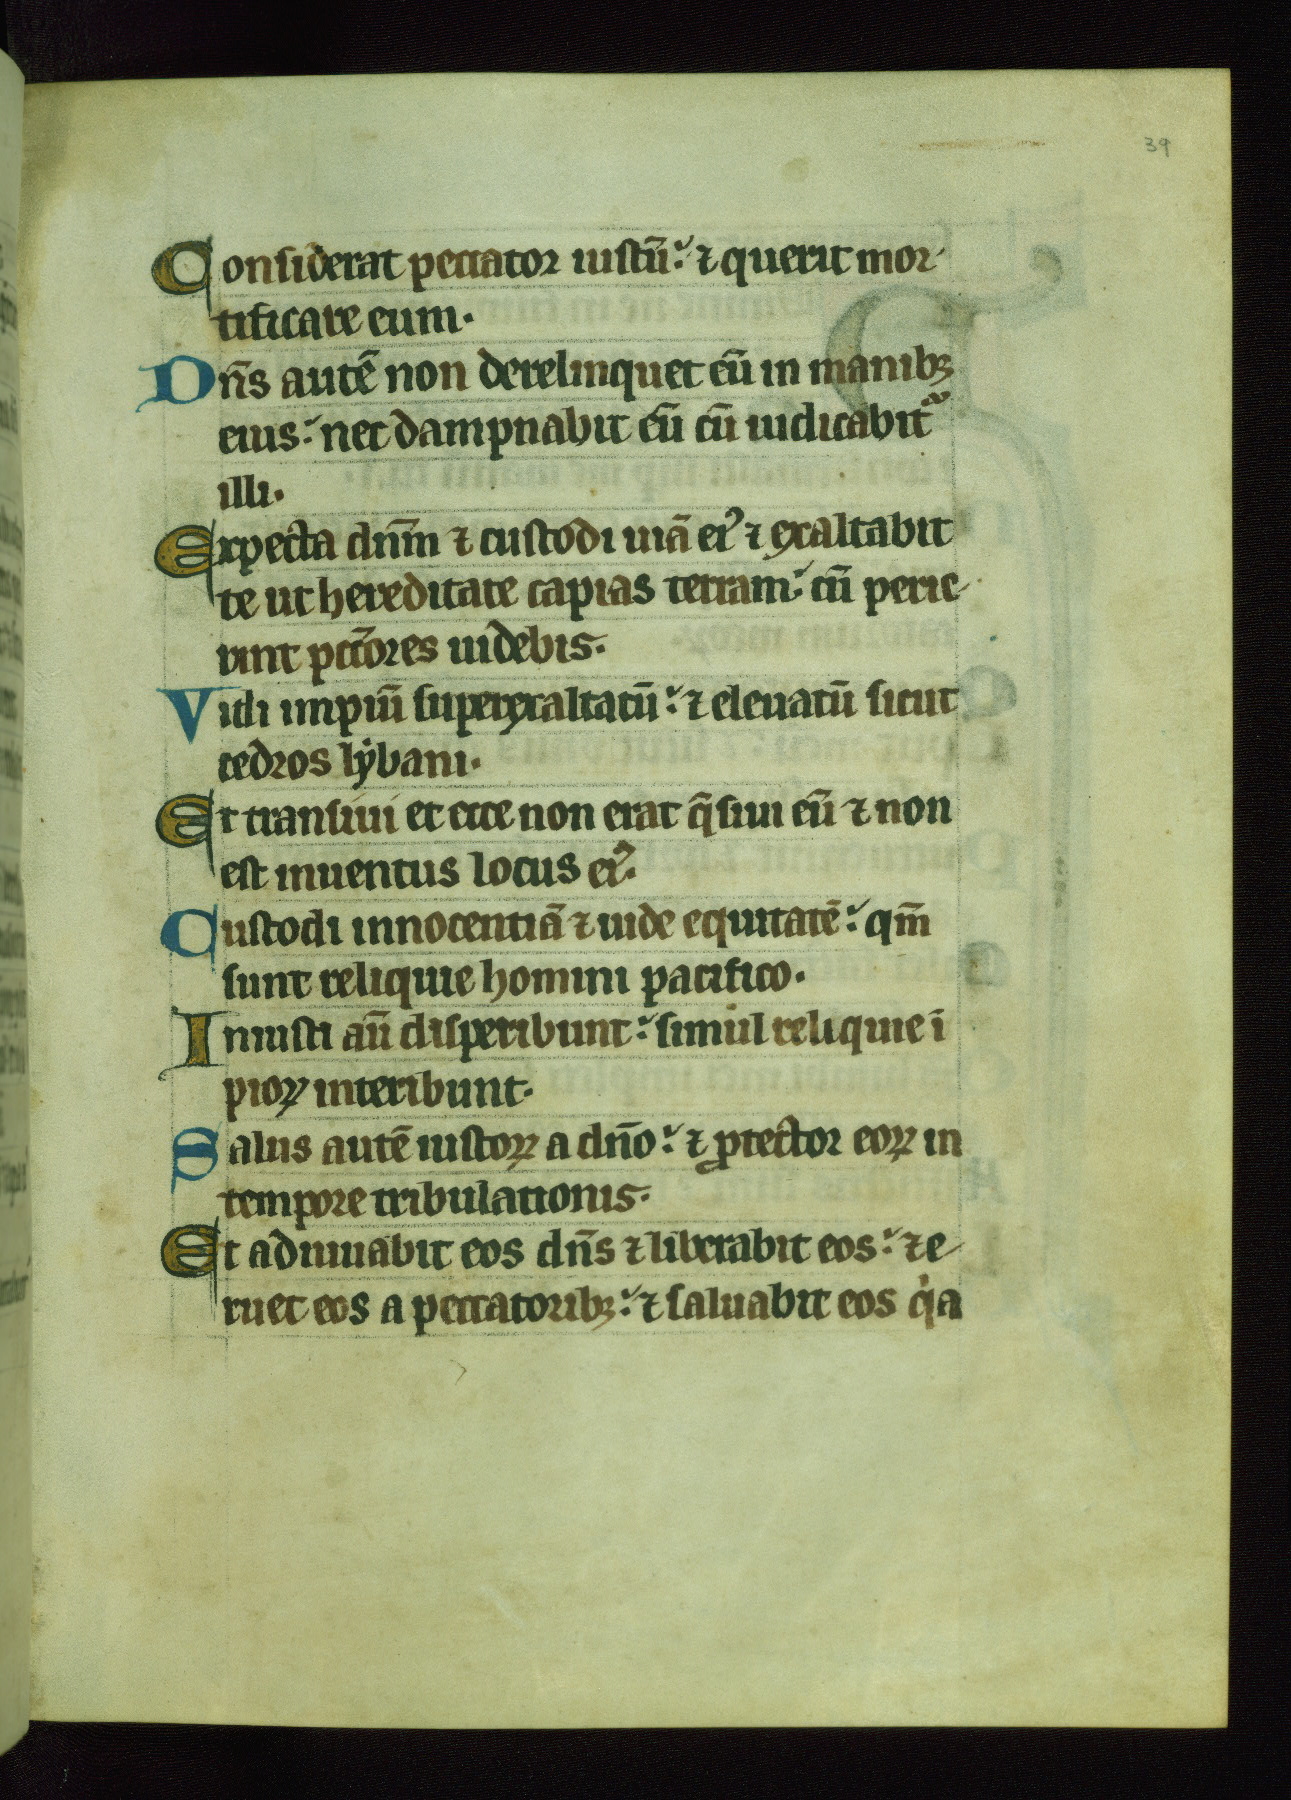 39
Considerat peccator iustū: ⁊ querit mor-
tificare eum.
Dn̄s autē non derelinquet eū in manibꝫ
eius: nec dampnabit eū cū iudicabit᷑
illi.
Expecta dn̄m ⁊ custodi uiā eiꝰ ⁊ exaltabit
te ut hereditate capias terram: cū perie-
rint pctōres uidebis.
Vidi impiū superexaltatū: ⁊ eleuatū sicut
cedros lẏbani.
Et transiui et ecce non erat q̄siui eū ⁊ non
est inuentus locus eiꝰ.
Custodi innocentiā ⁊ uide equitatē: qm̄
sunt reliquie homini pacifico.
Iniusti aū disperibunt: simul reliquie ī
pioꝝ interibunt.
Salus autē iustoꝝ a dn̄o: ⁊ ꝓtector eoꝝ in
tempore tribulationis.
Et adiuuabit eos dn̄s ⁊ liberabit eos: ⁊ e-
ruet eos a peccatoribꝫ: ⁊ saluabit eos qͥa